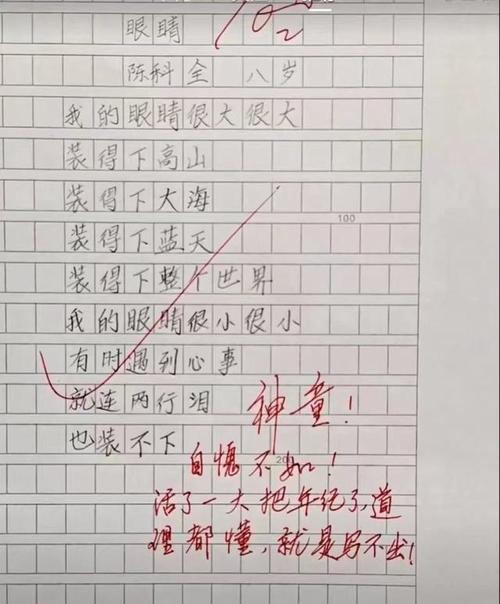 10²
眼睛
陈科全 八岁
我的眼睛很大很大
装得下高山
装得下大海
100
装得下蓝天
装得下整个世界
我的眼睛很小很小
有时遇到心事
就连两行泪
也装不下
神童！
自愧不如！
200
活了一大把年纪了,道
理都懂,就是写不出!